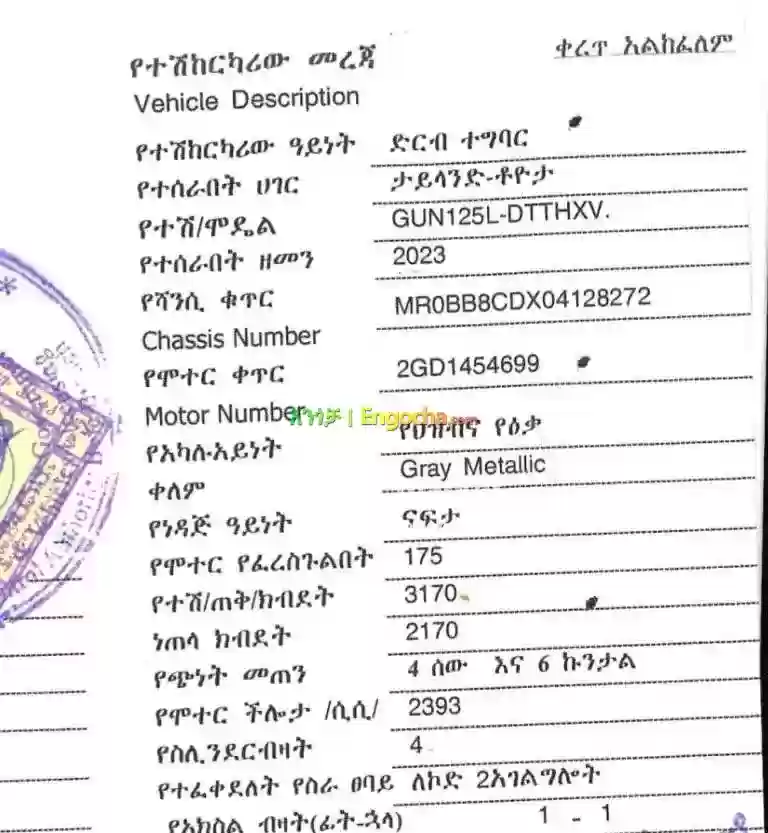 ቀረጥ አልከፈለም
የተሽከርካሪው መረጃ
Vehicle Description
የተሽከርካሪው ዓይነት ድርብ ተግባር
የተሰራበት ሀገር ታይላንድ-ቶዮታ
የተሽ/ሞዴል GUN125L-DTTHXV.
የተሰራበት ዘመን 2023
የሻንሲ ቁጥር MR0BB8CDX04128272
Chassis Number
የሞተር ቀጥር 2GD1454699
Motor Number
አንጎቻ | Engocha.com
የአካሉ አይነት የህዝብና የዕቃ
ቀለም Gray Metallic
የነዳጅ ዓይነት ናፍታ
የሞተር የፈረስጉልበት 175
የተሽ/ጠቅ/ክብደት 3170
ነጠላ ክብደት 2170
የጭነት መጠን 4 ሰው እና 6 ኩንታል
የሞተር ችሎታ /ሲሲ/ 2393
የስሊንደርብዛት 4
የተፈቀደለት የስራ ፀባይ ለኮድ 2አገልግሎት
የአክስል ብዛት(ፊት-ኋላ) 1 - 1